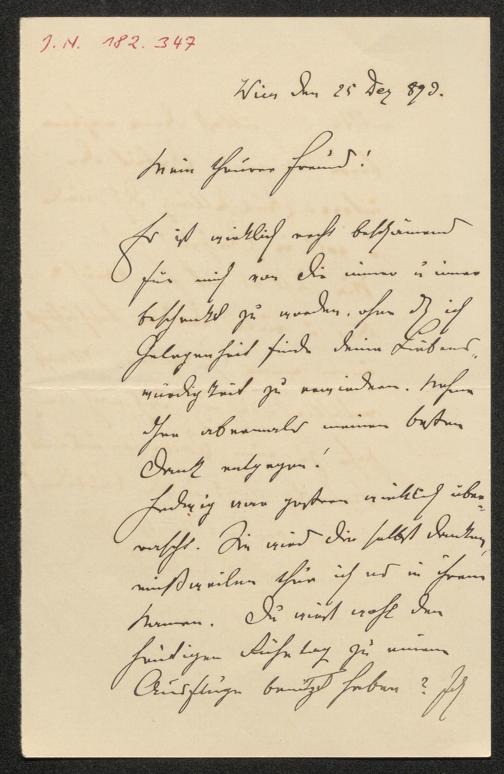 J. N. 182.347
Wien den 25 Dez 893.
Mein theurer Freund!
Es ist wirklich recht beschämend
für mich von Dir immer u immer
beschenkt zu werden, ohne dß ich
Gelegenheit finde deine Liebens„
würdigkeit zu erwiedern. Nehme
aber abermals meinen besten
Dank entgegen!
Hedwig war gestern wirklich über„
rascht. Sie wird Dir selbst danken,
einstweilen thue ich es in ihrem
Namen. Du wirst wohl den
heutigen Ruhetag zu einem
Ausfluge benützt haben? Ich